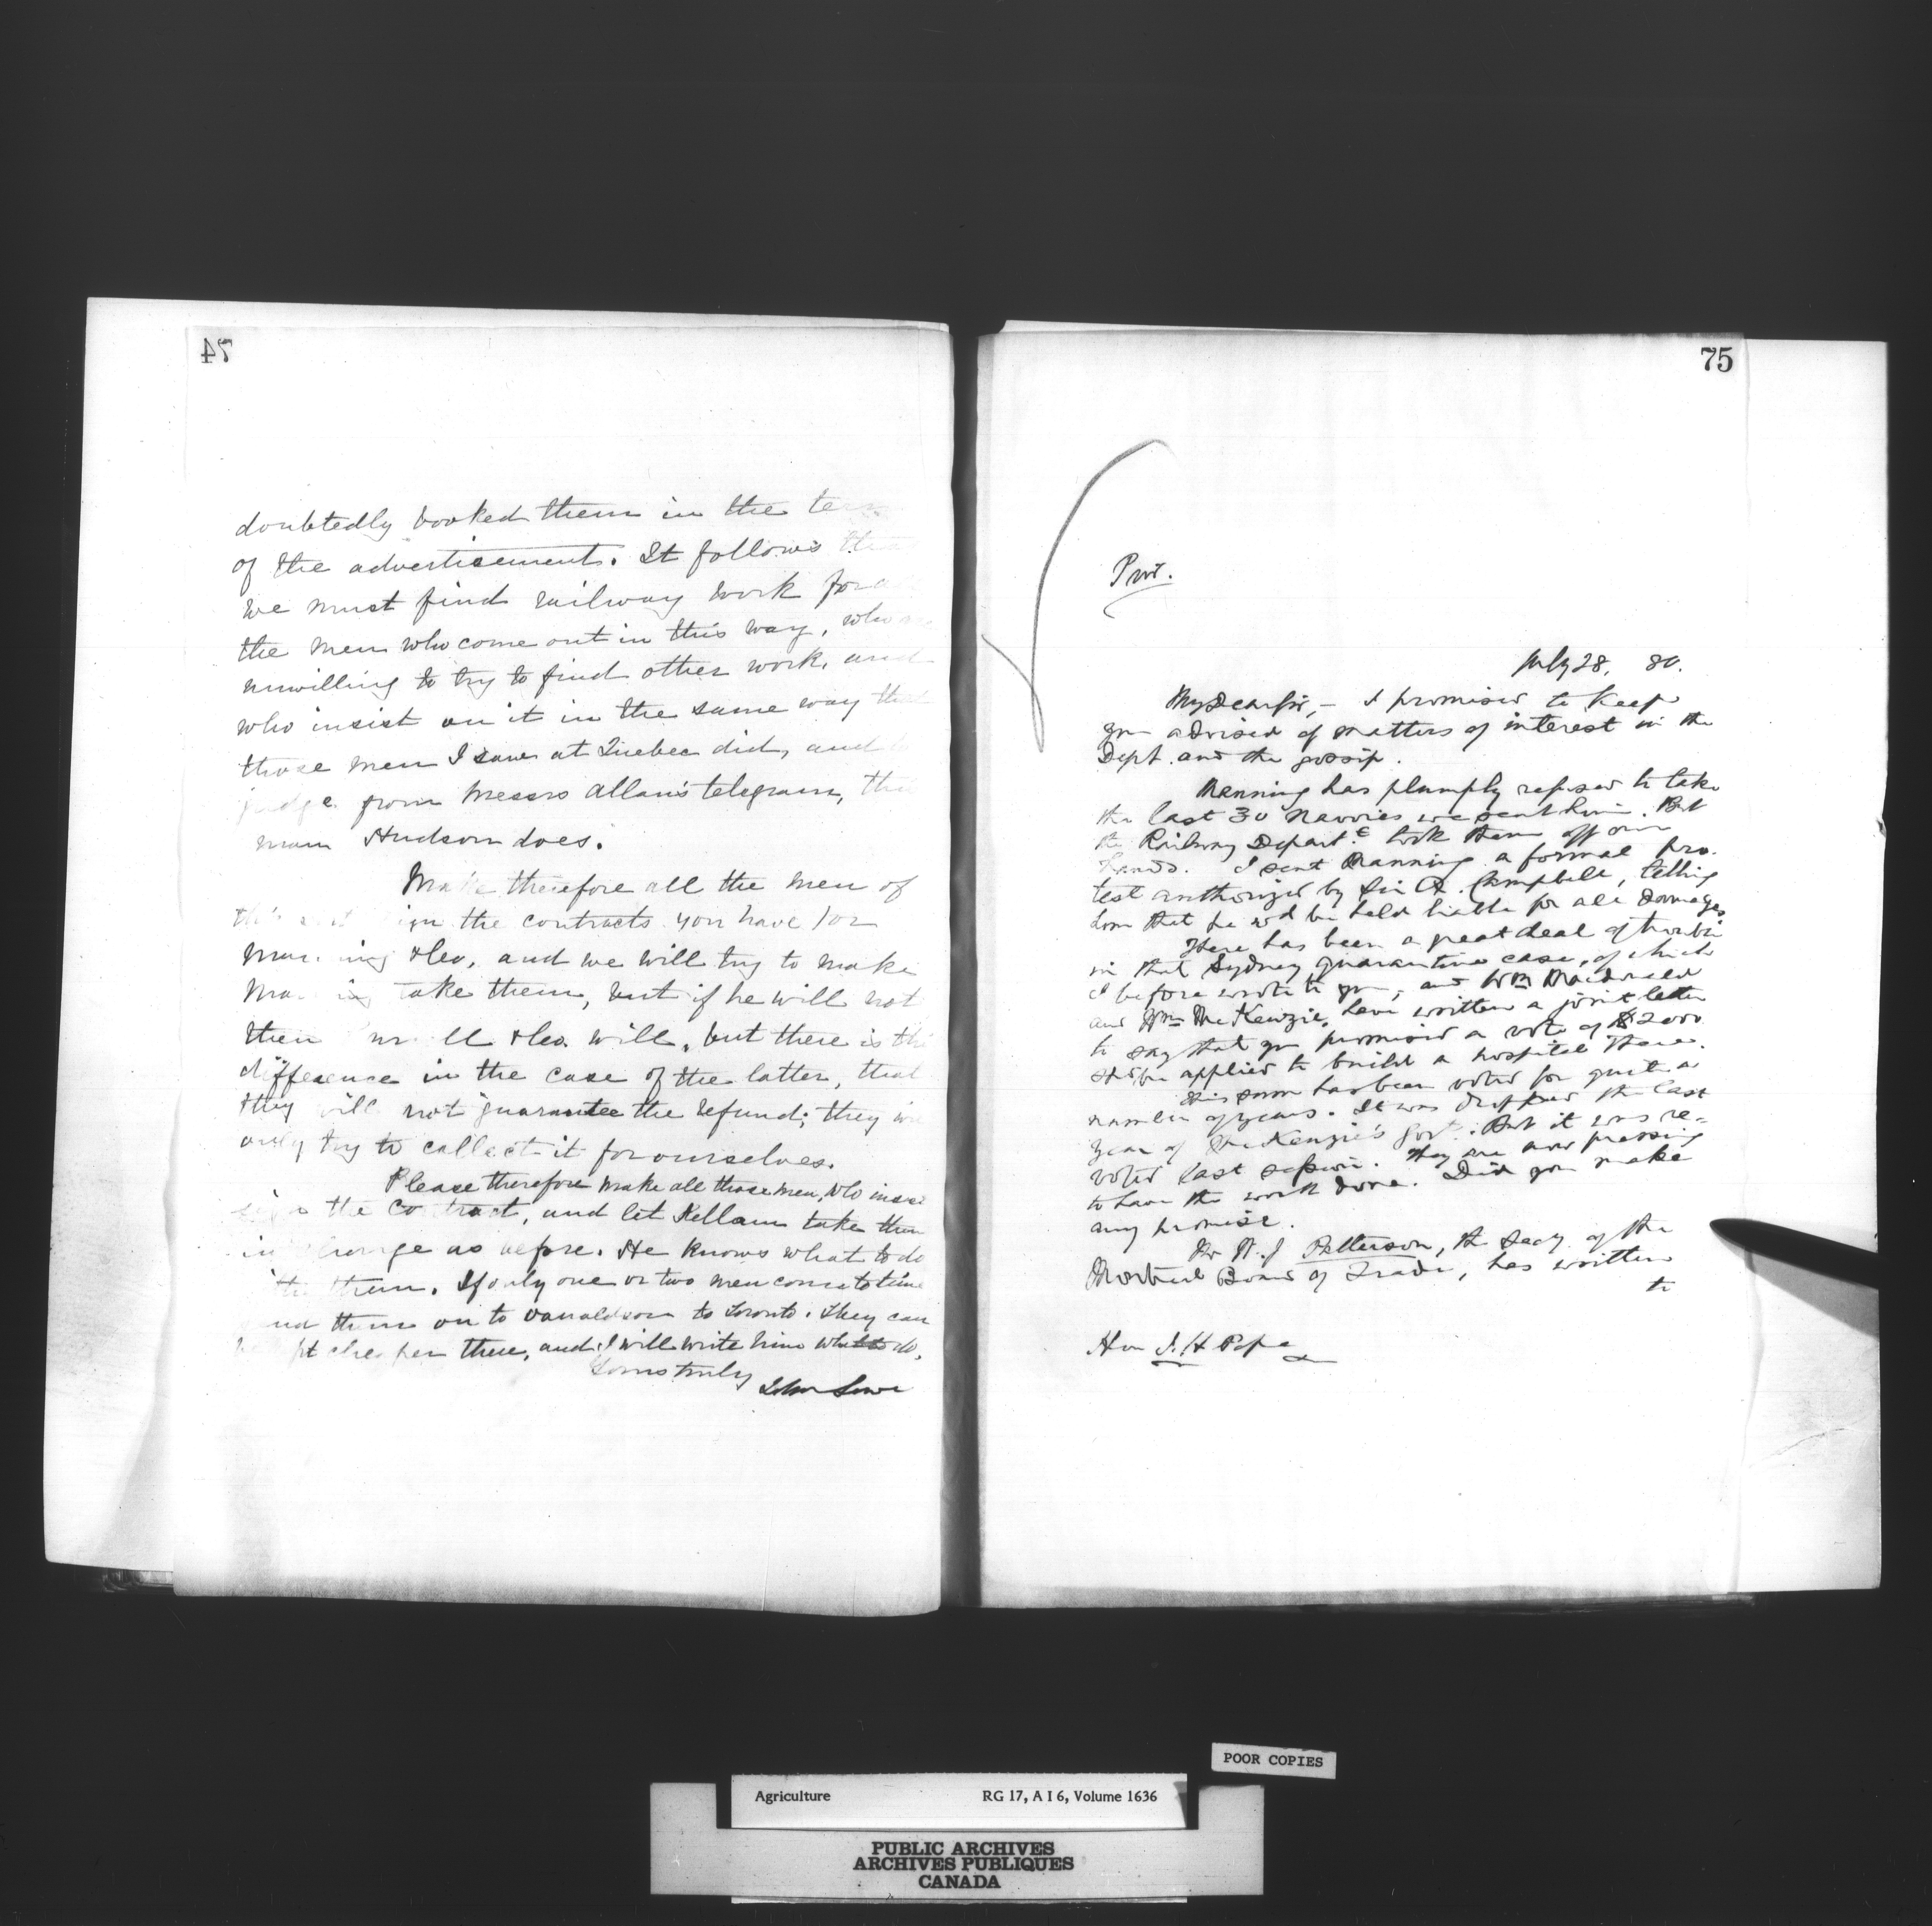 74
doubtedly booked them in the
of the advertisement. It follows
we must find railway work for
the men who come out in this way, who
unwilling to try to find other work, and
who insist on it in the same way
those men I saw at Quebec did, and
judge from Messrs Allan's telegram,
man Hudson does.
Make therefore all the men of
the contracts you have for
Manning & Co, and we will try to make
Manning take them, but if he will not
then & Co. will, but there is
difference in the case of the latter, that
they will not guarantee the refund; they
only try to collect it for ourselves.
Please therefore make all those men, who
the contract, and let Kellam take them
in charge as before. He knows what to do
them. If only one or two men come
them on to Donaldson to Toronto. They can
cheaper there, and I will write him what to do.
Yours truly
John Lowe
75
Prvt.
July 28, 80.
My Dear Sir, - I promised to keep
you advised of matters of interest in the
Dept. and the gossip.
Manning has plumply refused to take
the last 30 navvies we sent him. But
the Railway Depart.t took them off our
hands. I sent Manning a formal pro-
test authorized by Sir A. Campbell, telling
him that he wd be held liable for all damages
There has been a great deal of trouble
in that Sydney quarantine case, of which
I before wrote to you, and Wm Macdonald
and Wm McKenzie, have written a joint letter
to say that you promised a vote of $2000
shd be applied to build a hospital there.
This sum has been voted for quite a
number of years. It was dropped the last
year of McKenzie's Govt. But it was re-
voted last session. They are now pressing
to have the work done. Did you make
any promise.
Mr W. J. Patterson, the Secy. of the
Montreal Board of Trade, has written
to
Hon J. H Pope
POOR COPIES
Agriculture RG 17, A I 6, Volume 1636
PUBLIC ARCHIVES
ARCHIVES PUBLIQUES
CANADA